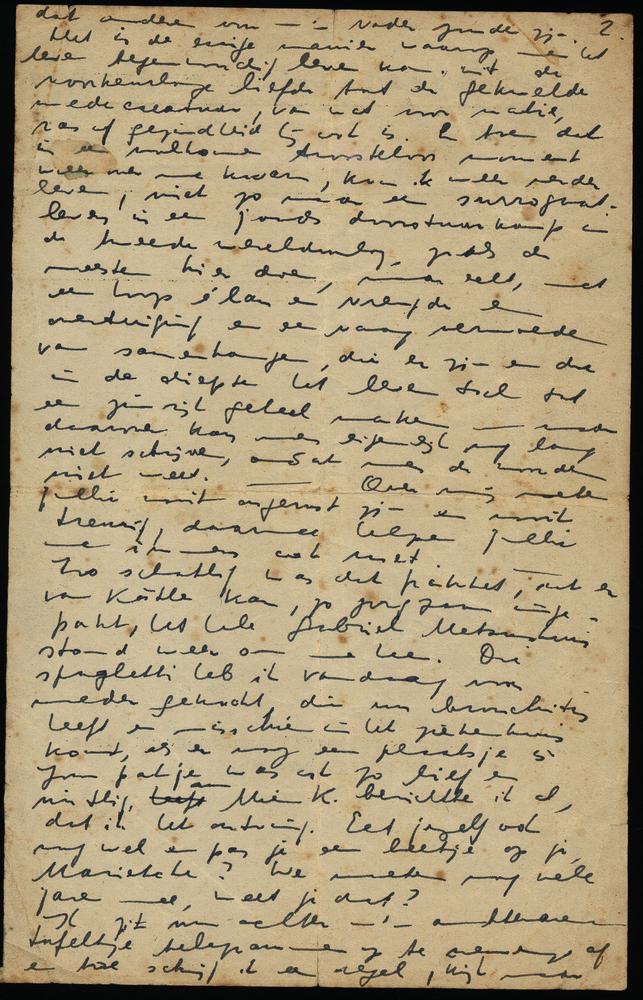 dat andere van vader zijn. 2.
Het is de enige manier waarop men het
leven tegenwoordig leven kan: uit de
liefde tot de gekwelde
medecreatuur, van wat voor natie,
ras of gezindheid hij ook is. En toen dat
in een volkomen troosteloos moment
weer over me kwam, kon ik weer verder
leven, niet zo maar een surrogaat-
leven in een joods doorstuurkamp in
de tweede wereldoorlog, zoals de
meesten hier doen, maar echt, met
een hoop élan en vreugde en
overtuiging en een vaag vermoeden
van samenhangen, die er zijn en die
in de diepte het leven toch tot
een zinrijk geheel maken — maar
daarover kan men eigenlijk nog lang
niet schrijven, omdat men de woorden
niet weet. — Over mij moeten
jullie nooit ongerust zijn en nooit
treurig, daarmee helpen jullie
me immers ook niet. —
Zo schattig was dat pakket, dat er
van Käthe kwam, zo zorgzaam inge-
pakt, het hele Gabriel Metsuhuis
stond weer om me heen. Die
spaghetti heb ik vandaag voor
moeder gekookt, die nu bronchitis
heeft en misschien in het ziekenhuis
komt, als er nog een plaatsje is.
Jouw pakje was ook zo lief en
nuttig, aan Mien K. berichtte ik al,
dat ik het ontving. Eet jezelf ook
nog wel en pas je een beetje op je,
Marietche? We moeten nog vele
jaren mee, weet je dat?
Ik zit nu achter m'n
tafeltje telegrammen op te nemen af
en toe schrijf ik een regel, kijk maar